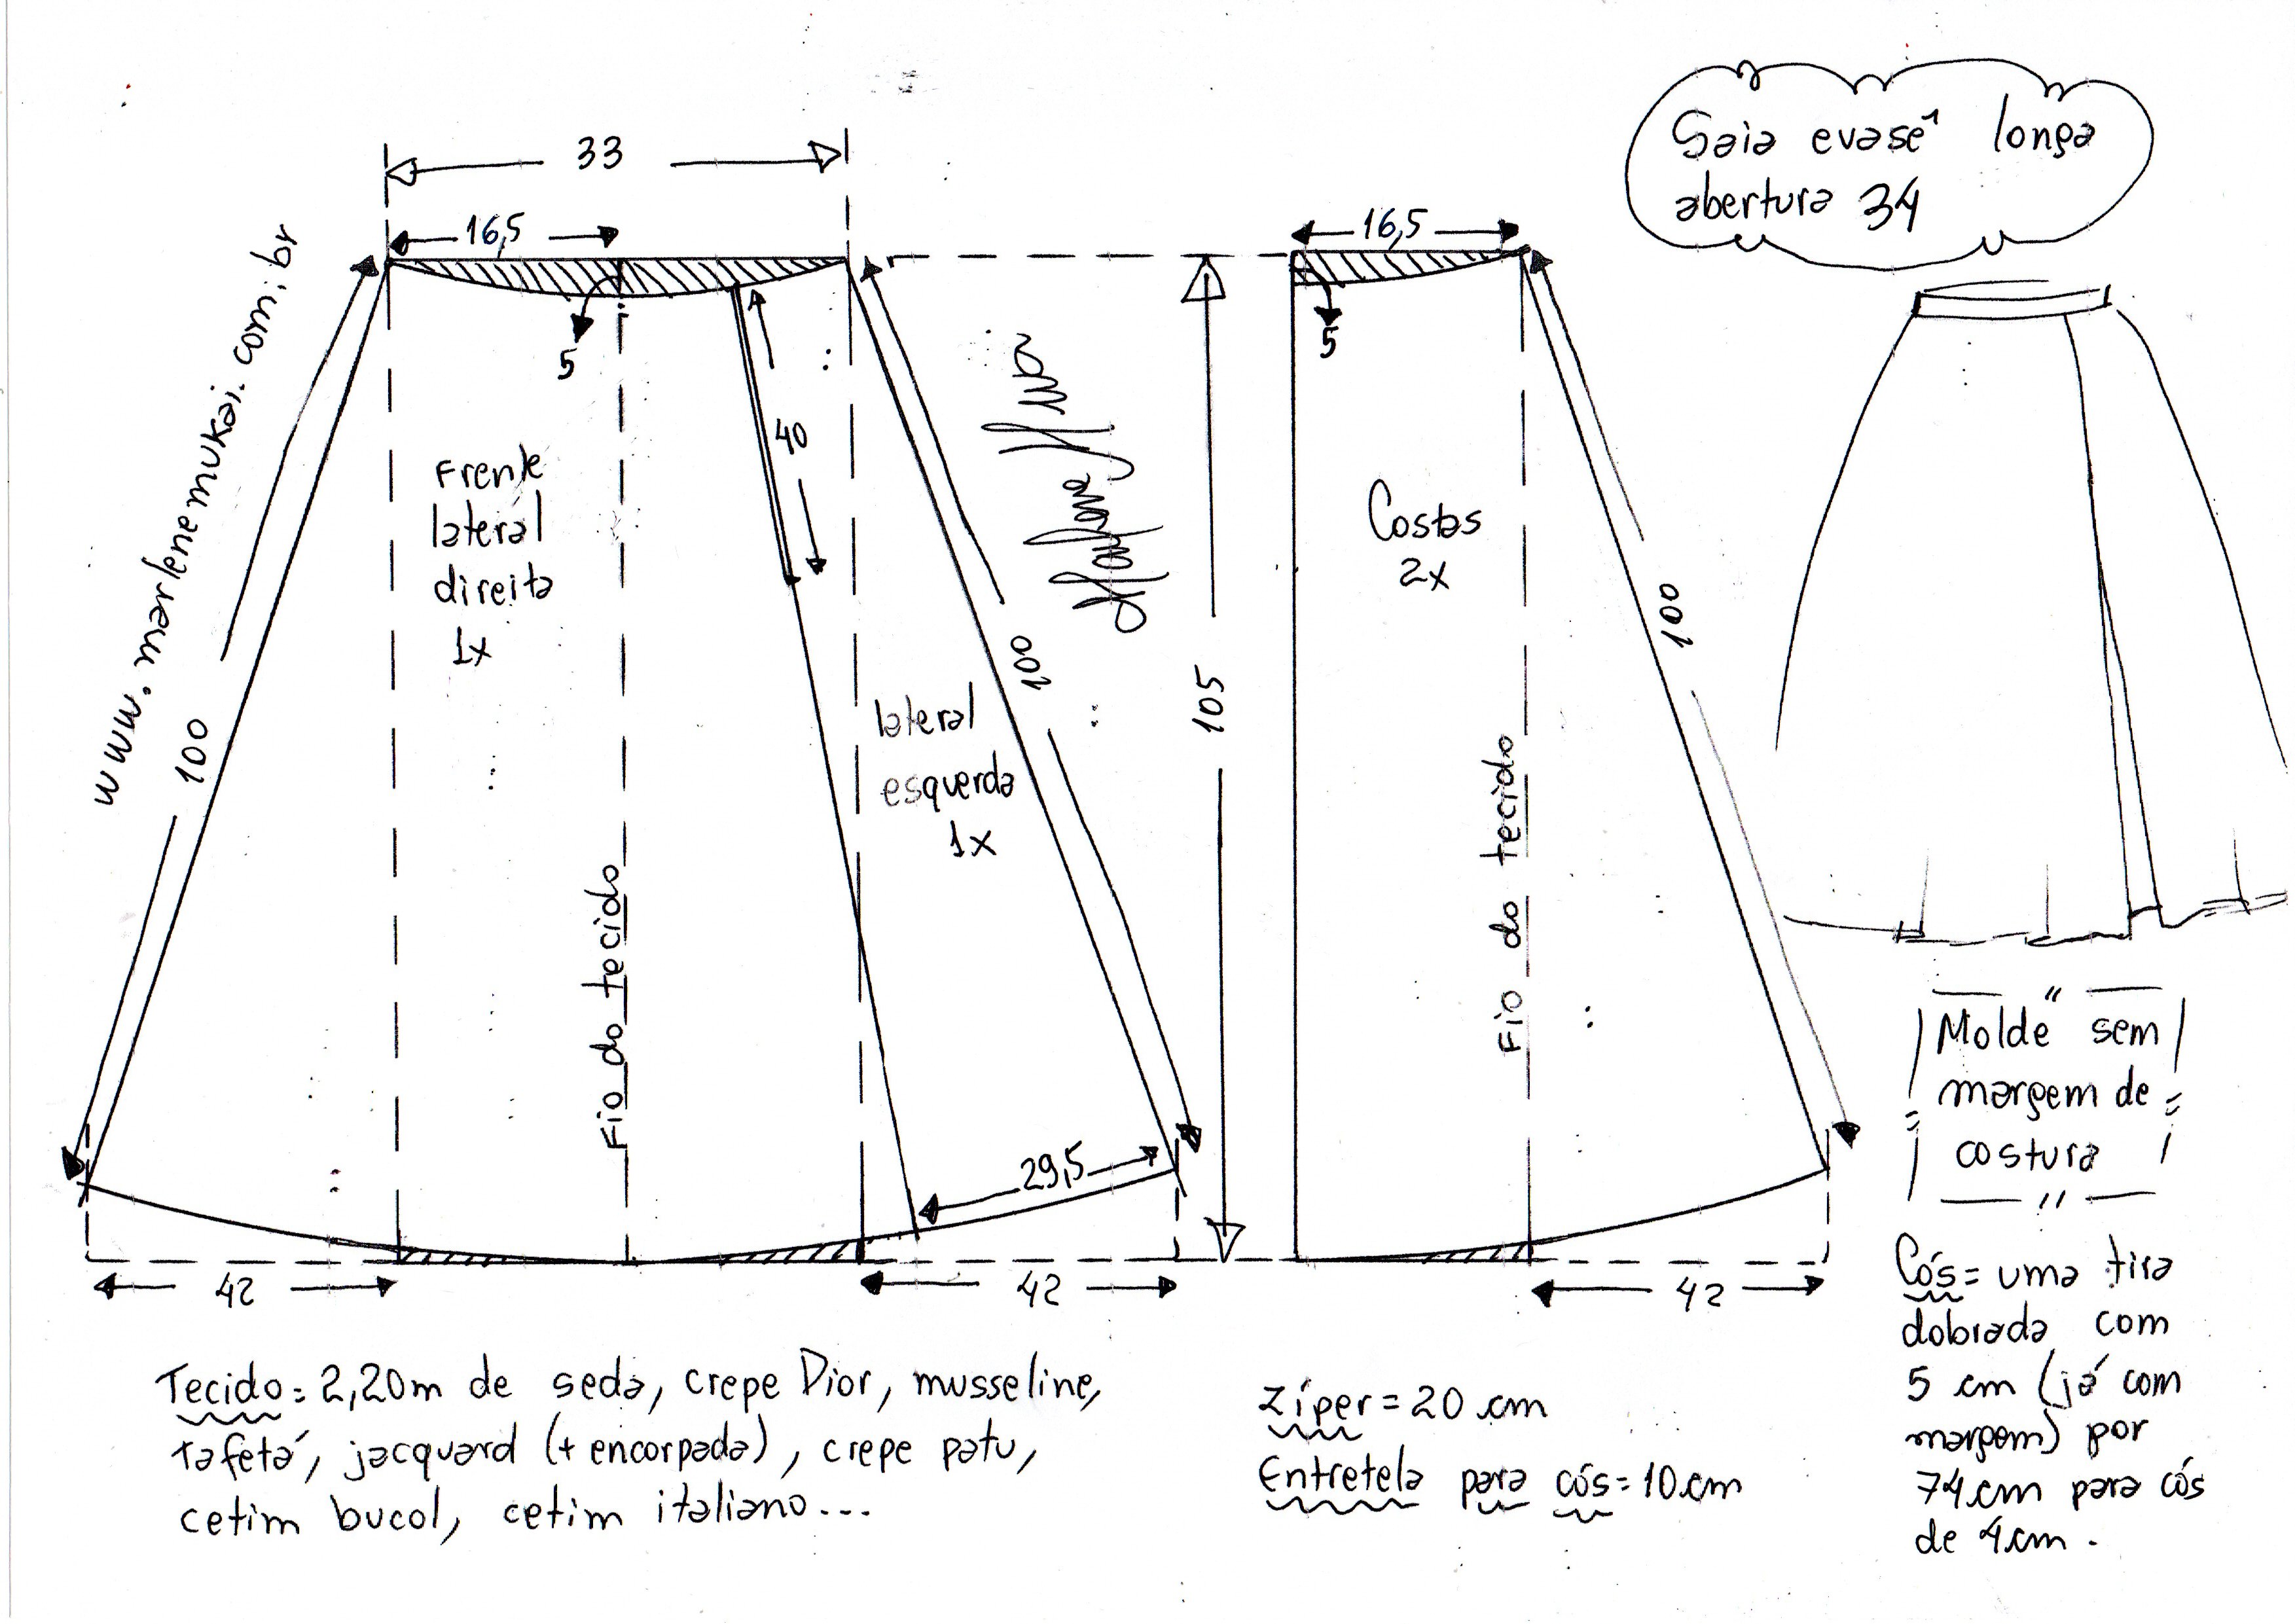 Saia evasê longa
abertura 34
33
16,5
16,5
www.marlenemukai.com.br
5
5
40
Frente
lateral
direita
1x
Costas
2x
100
100
100
105
lateral
esquerda
1x
Fio do tecido
Fio do tecido
29,5
42
42
42
"
Molde sem
margem de
costura
"
Tecido = 2,20m de seda, crepe Dior, musseline,
tafetá, jacquard (+ encorpada), crepe patu,
cetim bucol, cetim italiano...
Zíper = 20 cm
Entretela para cós = 10 cm
Cós = uma tira
dobrada com
5 cm (já com
margem) por
74 cm para cós
de 4 cm.